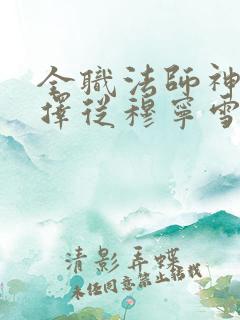 全職法師神
擇從穆寧雪
清影弄蝶
未经同意禁止转载